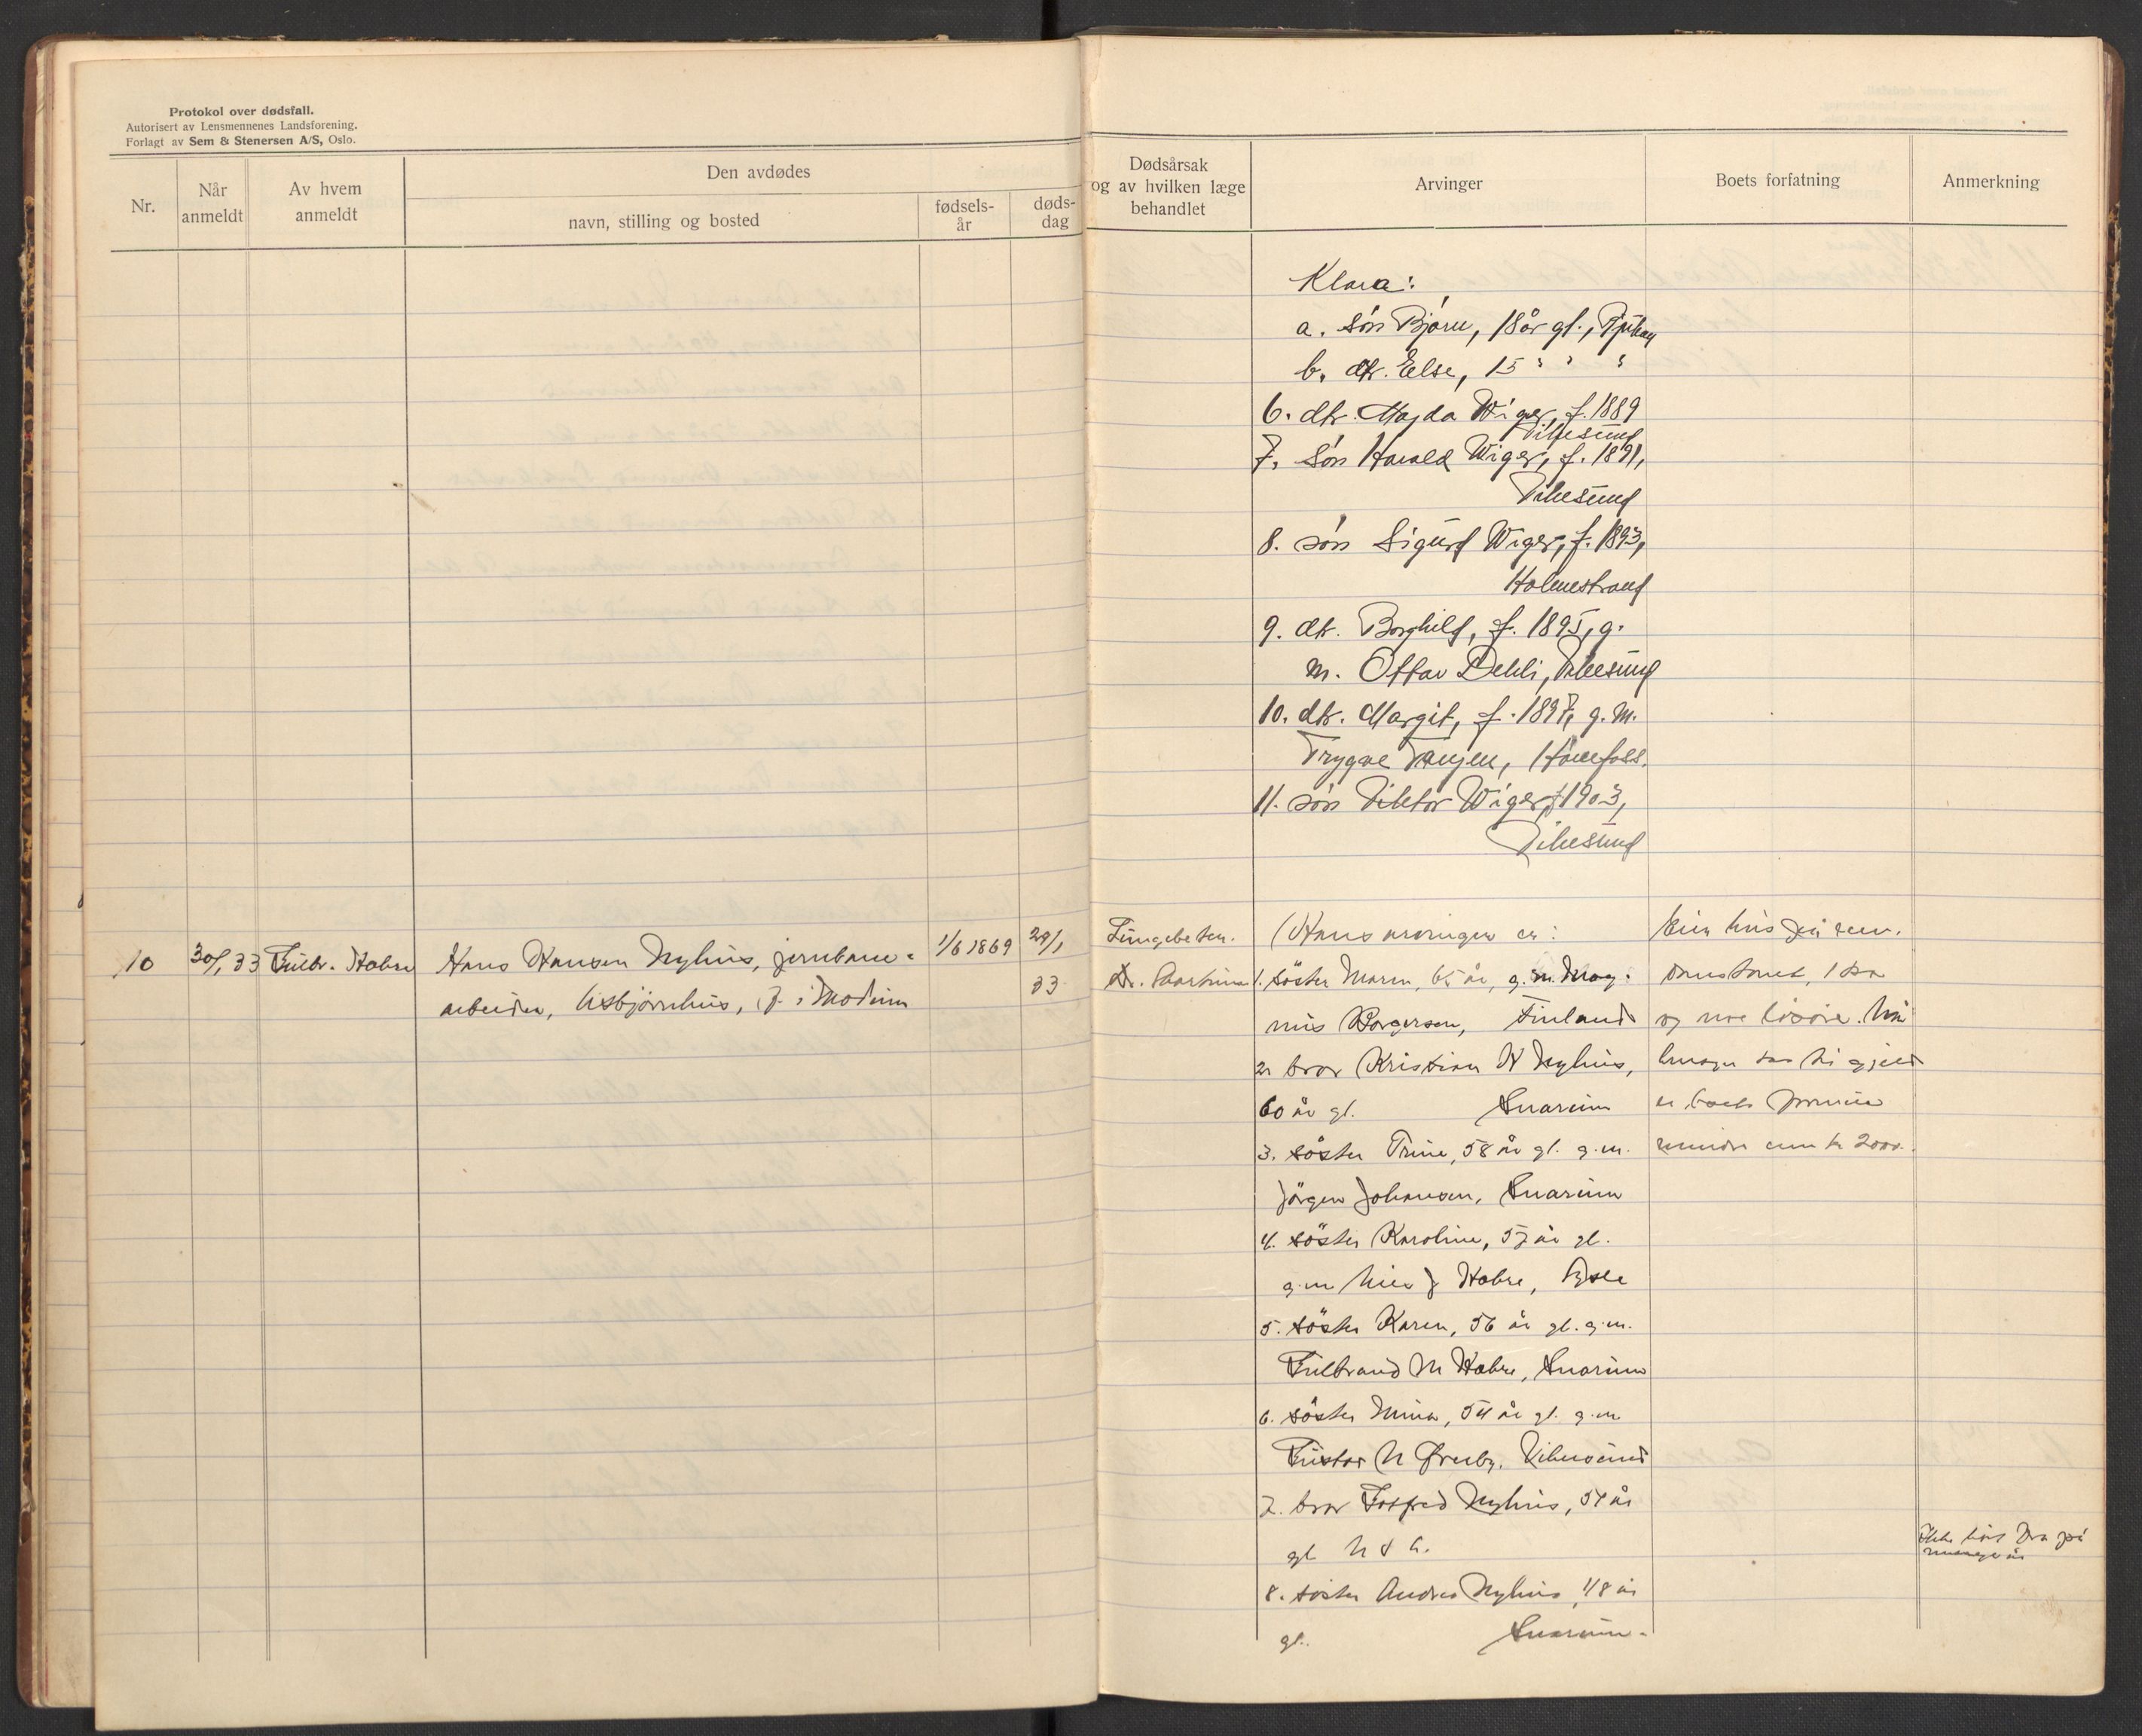 Protokol over dødsfall.
Autorisert av Lensmennenes Landsforening.
Forlagt av Sem & Stenersen A/S, Oslo.
Nr.
Når anmeldt
Av hvem anmeldt
Den avdødes
navn, stilling og bosted
fødselsår
dødsdag
Dødsårsak
og av hvilken læge
behandlet
Arvinger
Boets forfatning
Anmerkning
Klara:
a. søn Bjørn, 18 år gl., Rjukan
b. dtr. Else, 15 " " "
6. dtr. Magda Wiger, f. 1889
Vikesund
7. søn Harald Wiger, f. 1891,
Vikesund
8. søn Sigurd Wiger, f. 1893,
Holmestrand
9. dtr. Borghild, f. 1895, g.
m. Ottar Dehli, Vikesund
10. dtr. Margit, f. 1897, g. m.
Trygve Tangen, Hønefoss.
11. søn Viktor Wiger, f 1903,
Vikesund
10
30/1 33
Gulbr. Habre
Hans Hansen Nyhus, jernbane-
arbeider, Asbjørnhus, f. i Modum
1/6 1869
29/1
33
Lungebeten.
Dr.
Hans arvinger er:
1. søster Maren, 65 år, g. m. Mag-
nus Borgersen, Finland
2 bror Kristian H Nyhus,
60 år gl. Snarum
3. søster Trine, 58 år gl. g. m.
Jørgen Johansen, Snarum
4. søster Karoline, 57 år gl.
g. m Nils J Habre, Sysle
5. søster Karen, 56 år gl. g. m.
Gulbrand M Habre, Snarum
6. søster Mina, 54 år gl. g. m
Gustav N Ørenby, Vikesund
7. bror Gotfred Nyhus, 51 år
gl U S A.
8. søster Andrea Nyhus, 48 år
gl. Snarum.
Ein hus på
og noe løsøre.
gjeld
er boets
mindre enn kr 2000.
Ikke hørt fra på
mange år